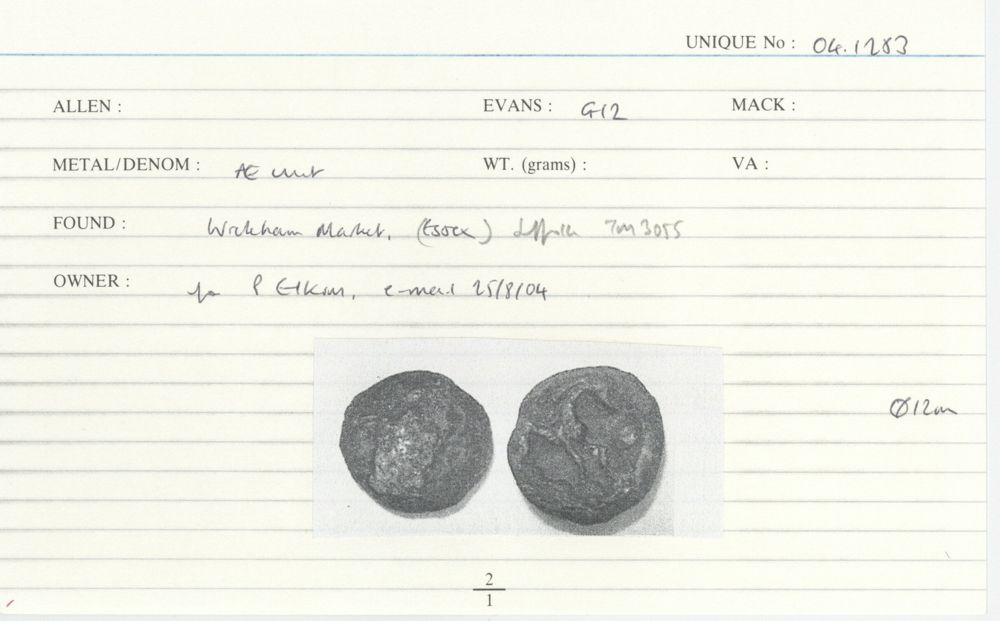 UNIQUE No : 04.1283
ALLEN : EVANS : G12 MACK :
METAL/DENOM : AE unit WT. (grams) : VA :
FOUND : Wickham Market, (Essex) Suffolk TM3055
OWNER : P Elkins, e-mail 25/8/04
Ø12m
2
1